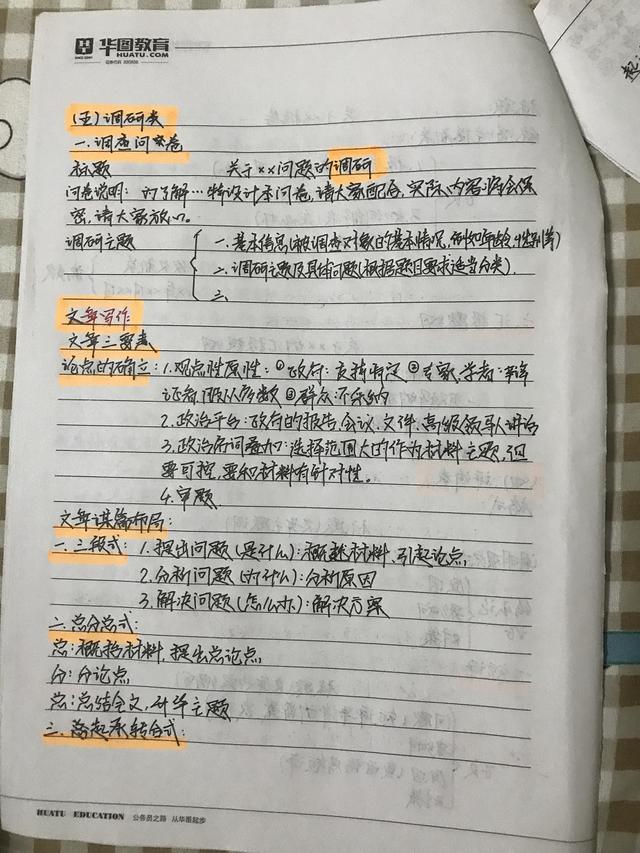 华图教育
HUATU.COM
(五)调研类
一.调查问卷卷
标题 关于××问题的调研
问卷说明: 为了解…特设计本问卷,请大家配合,实际内容将会保
密,请大家放心。
调研主题 一.基本信息(被调查对象的基本情况,例如年龄,性别等)
二.调研主题及具体问题(根据题目要求适当分类).
三.
文章写作:
文章三要素
论点的确立:1.观点性原性:①政府:支持肯定 ②专家,学者:
证和,服从多数 ③群众:不采纳
2.政治平台:政府的报告,会议、文件、高级领导人讲话
3.政治名词叠加:选择范围大的作为材料主题,但
要可控,要和材料有针对性。
4.审题
文章谋篇布局:
一.三段式: 1.提出问题(是什么):概括材料、引起论点,
2.分析问题(为什么):分析原因
3.解决问题(怎么办):解决方案
二.总分总式:
总:概括材料,提出总论点,
分:分论点
总:总结全文,升华主题
三.起承转合式:
HUATU EDUCATION 公务员之路 从华图起步